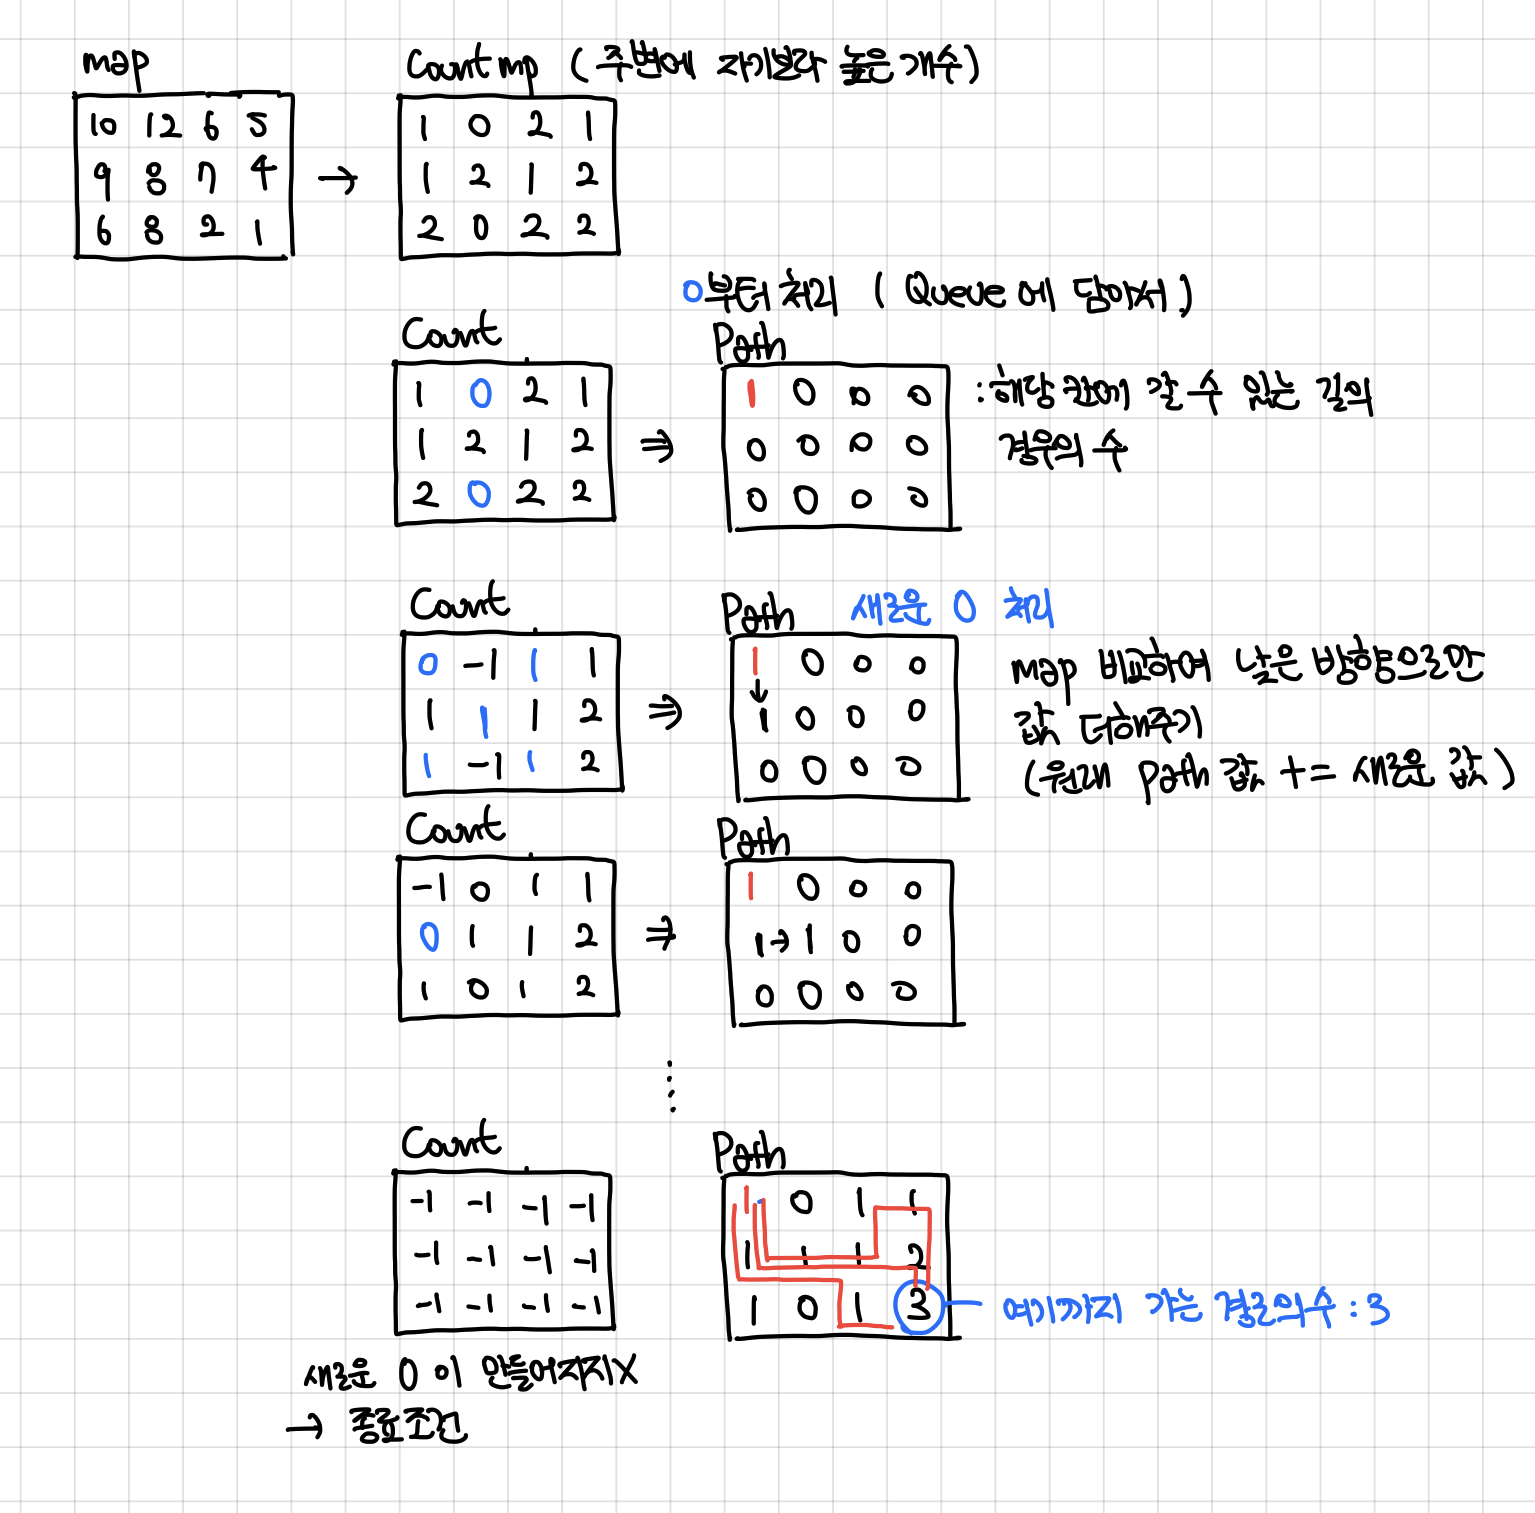 map
Count mp (주변에 자기보다 높은 개수)
10 12 6 5
9 8 7 4
6 8 2 1
→
1 0 2 1
1 2 1 2
2 0 2 2
0부터 처리 ( Queue에 담아서.)
Count
1 0 2 1
1 2 1 2
2 0 2 2
⇒
Path
1 0 0 0
0 0 0 0
0 0 0 0
:해당 칸에 갈 수 있는 길의
경우의 수
Count
0 -1 1 1
1 1 1 2
1 -1 1 2
⇒
Path
새로운 0 처리
1 0 0 0
↓
1 0 0 0
0 0 0 0
map 비교하여 낮은 방향으로만
값 더해주기
(원래 path 값 += 새로운 값)
Count
-1 0 1 1
0 1 1 2
1 0 1 2
⇒
Path
1 0 0 0
1→1 0 0
0 0 0 0
Count
-1 -1 -1 -1
-1 -1 -1 -1
-1 -1 -1 -1
Path
1 0 1 1
1 1 1 2
1 0 1 3
여기까지 가는 경로의수 : 3
새로운 0 이 만들어지지X
→ 종료조건